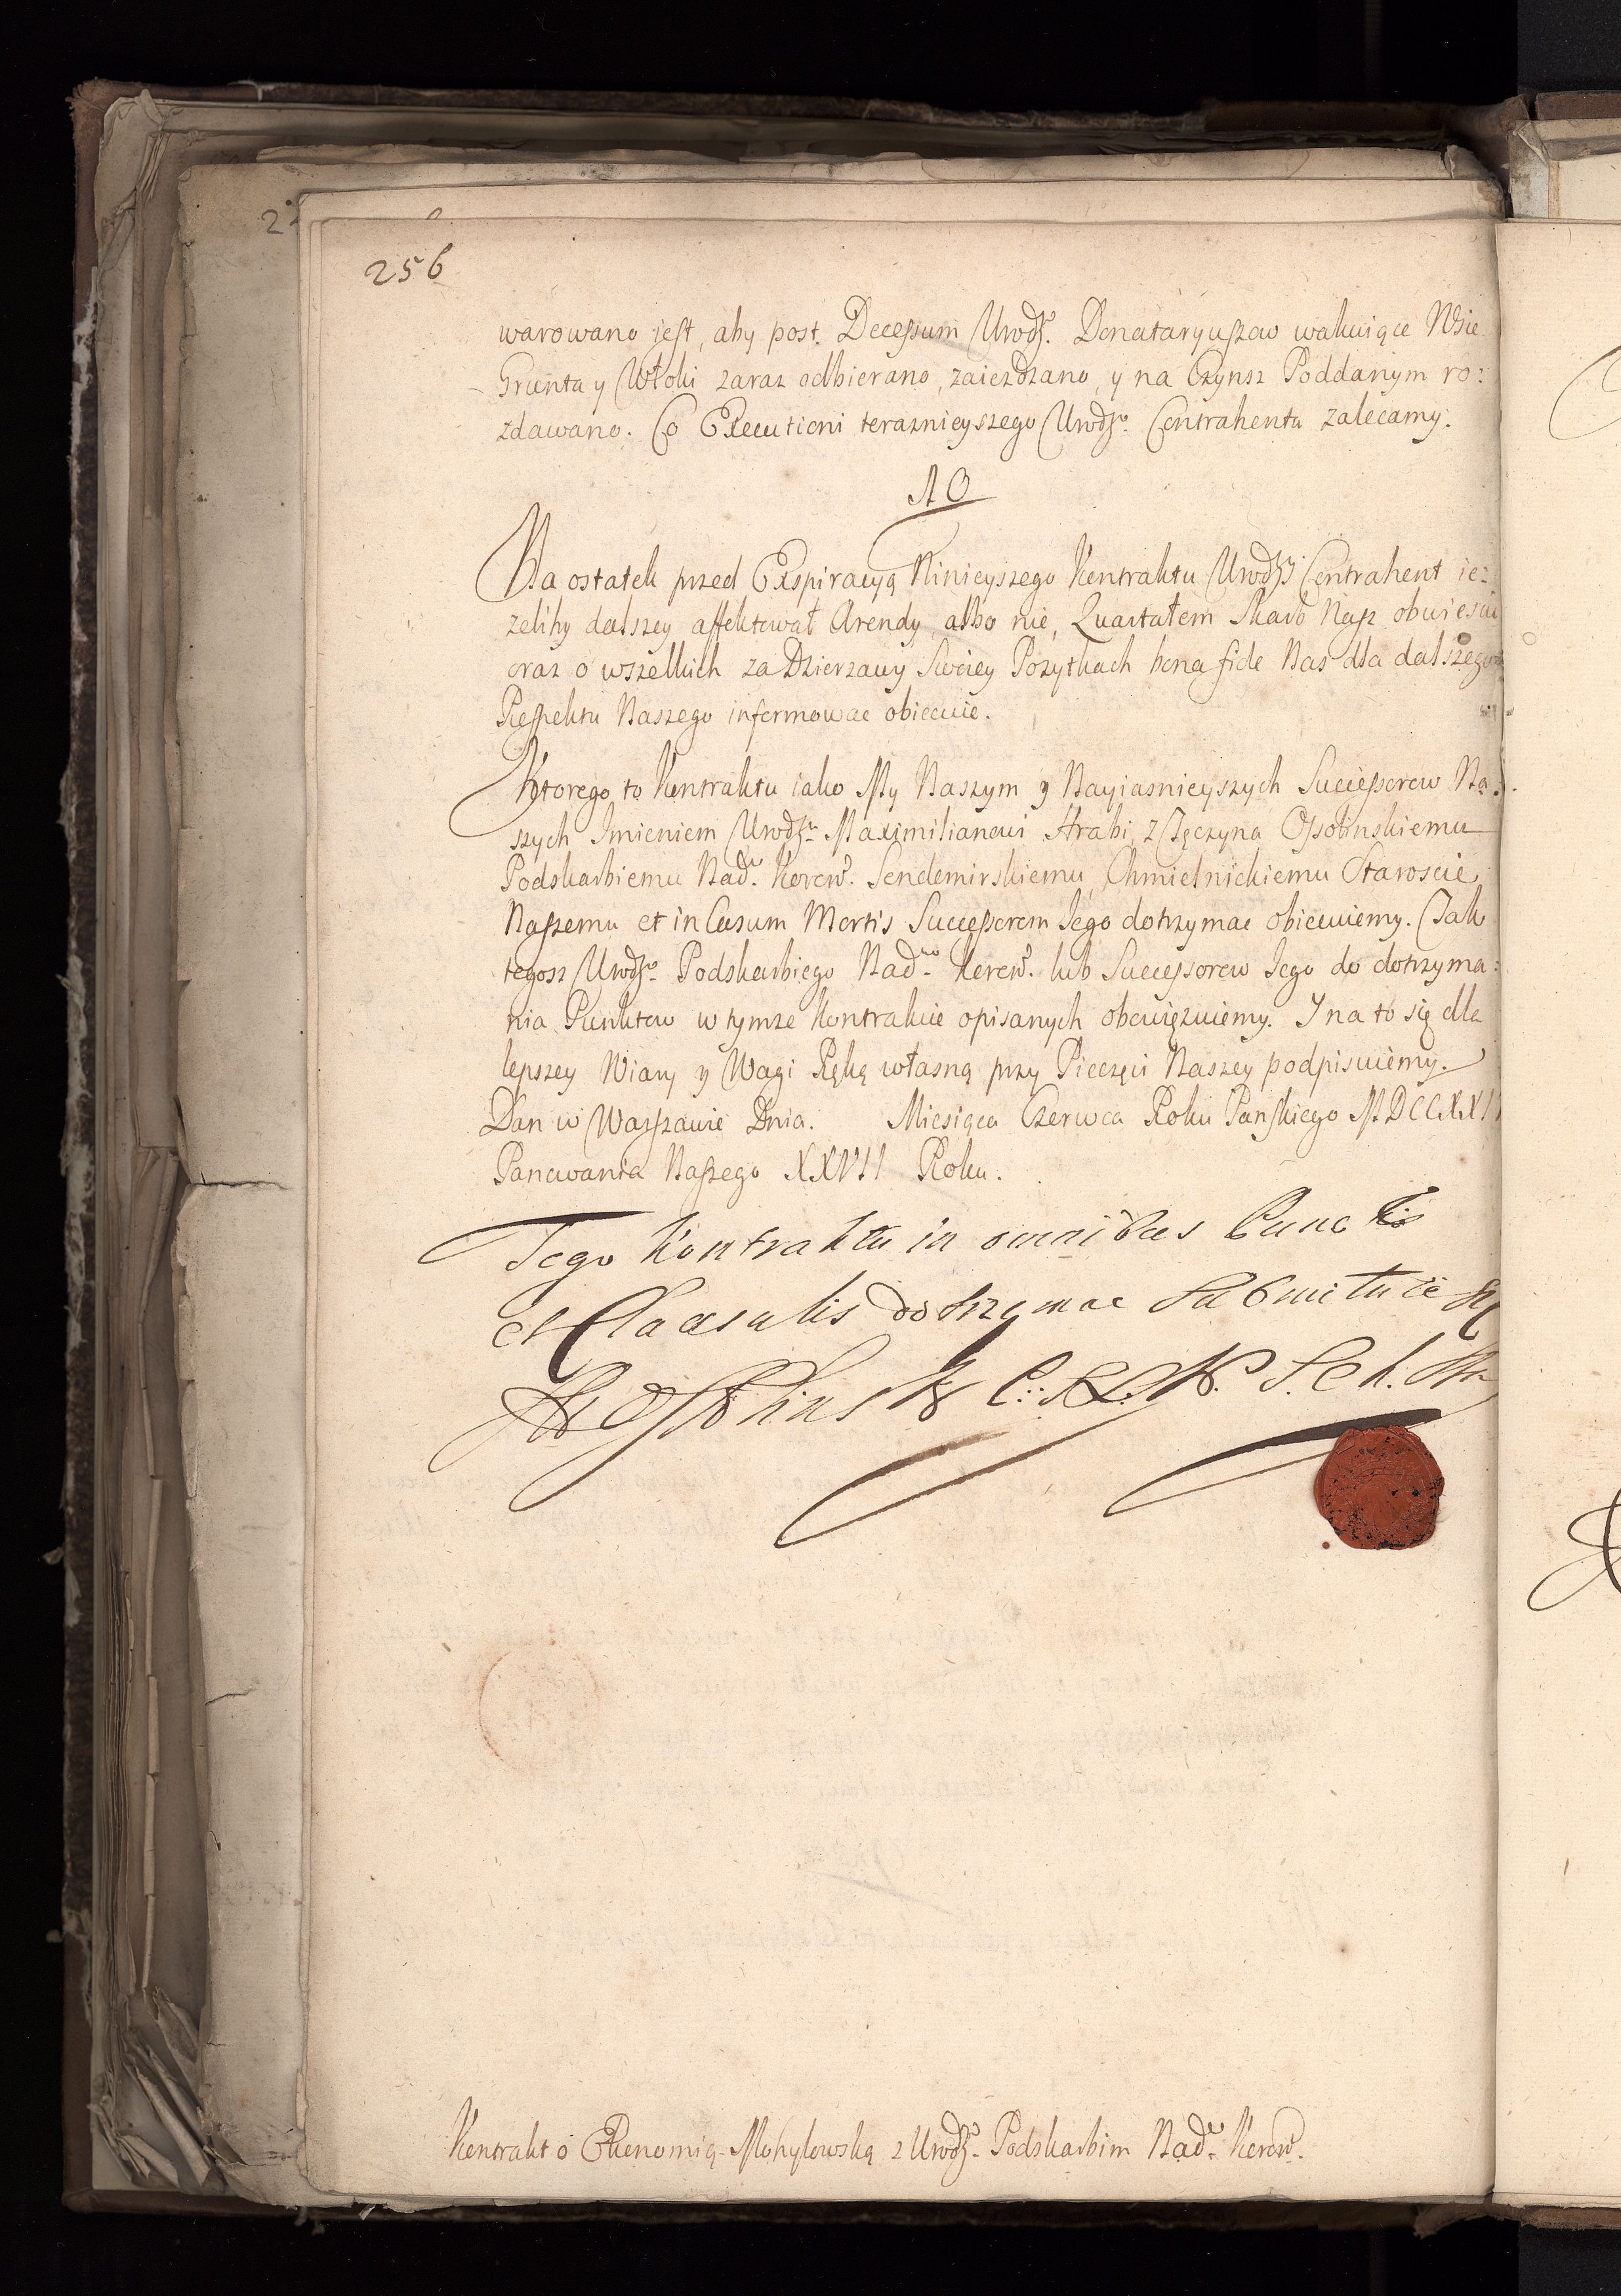 256
warowano jest, aby post Decessum Urodz. Donataryuszow wakuiące Wsie
Grunta y Włoki zaraz odbierano, zaiezdzano, y na Czynsz Poddanym ro:
zdawano. Co Executioni teraznieyszego Urodzo. Contrahenta zalecamy.
10
Na ostatek przed Expiracyą Ninieyszego Kontraktu Urodzy Contrahent iez
zeliby dalszey affektował Arendy, albo nie, Quartałem Skarb Nasz obwiescic
oraz o wszelkich za Dzierzawy Swoiey Pozytkach bona fide Nas dla dalszego
Respektu Naszego informowac obiecuie.
Ktorego to Kontraktu iako My Naszym y Nayiasnieyszych Successorow Na:
szych Imieniem Urodzu Maximilianowi Hrabi z Tęczyna Ossolinskiemu
Podskarbiemu Nadu. Korow. Sendomirskiemu, Chmielnickiemu Staroscie
Naszemu et in Casum Mortis Successorom Jego dotrzymac obiecuiemy. Tak
tegosz Urodzo Podskarbiego Nadwo. Korow. lub Successorow Jego do dotrzyma:
nia Punktow w tymze Kontrakcie opisanych obowięzuiemy. I na to się dla
lepszey Wiary y Wagi Ręką własną przy Pieczęci Naszey podpisuiemy.
Dan w Warszawie Dnia. Miesiąca Czerwca Roku Panskiego
Panowania Naszego XXVII Roku.
Tego Kontraktu in omnibus Punctis
et Clausulis dotrzymac submituie się
Ossolinsky
Kontrakt o Ekonomią Mohylowską z Urodzo. Podskarbim Nadu. Korow.